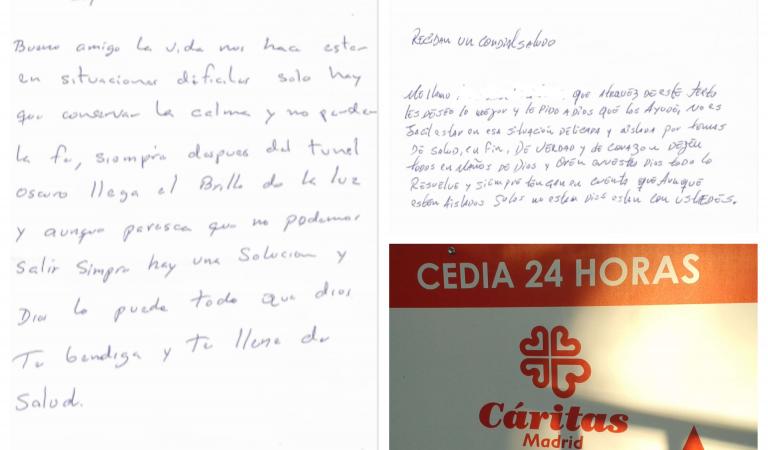 Bueno amigo la vida nos hace estar
en situaciones dificiles solo hay
que conservar la calma y no perder
la fe, siempre despues del tunel
oscuro llega el Brillo de la luz
y aunque paresca que no podemos
salir Simpre hay una Solucion y
Dios lo puede todo que dios
Te bendiga y te llene de
Salud.
RECIBAN UN CORDIAL SALUDO
Me llamo que atravez DE ESTE texto
LES DESEO lo mejor y le PIDO A DIOS que los Ayude, NO ES
facil estar en esa situación DELICADA y Aislada por temas
DE SALUD, en fin, DE VERDAD y de corazon DEJEN
todos en MANOS DE Dios y OREN nuestro Dios todo lo
Resuelve y siempre tengan en cuenta que Aunque
esten Aislados Solos no estan Dios esta con USTEDES.
CEDIA 24 HORAS
Cáritas
Madrid